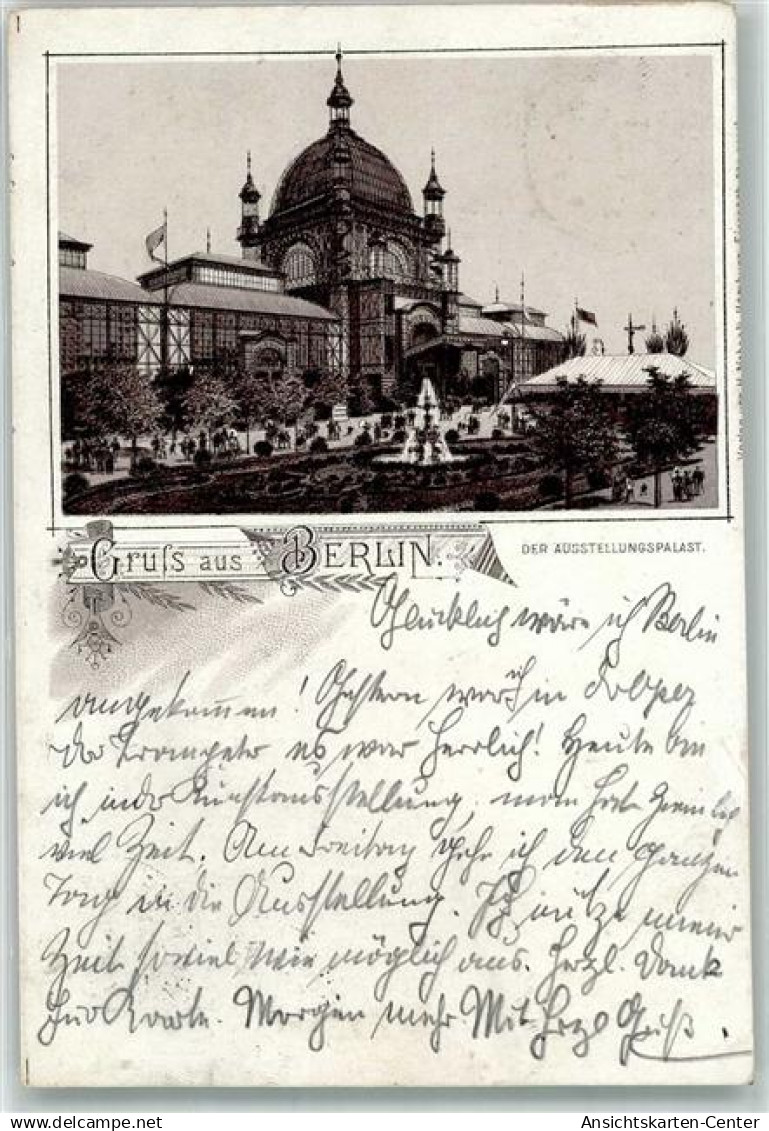 Gruss aus BERLIN.
DER AUSSTELLUNGSPALAST.
Glücklich wäre ich Berlin
angekommen! Gestern war ich in
der Trompeter es war herrlich! Heute bin
ich in der Kunstausstellung, man hat
viel Zeit. Am Freitag gehe ich den ganzen
Tag in die Ausstellung. Ich nütze meine
Zeit soviel wie möglich aus. Herzl. Dank
für Karte. Morgen mehr Mit Herzl Gruß.
Ansichtskarten-Center